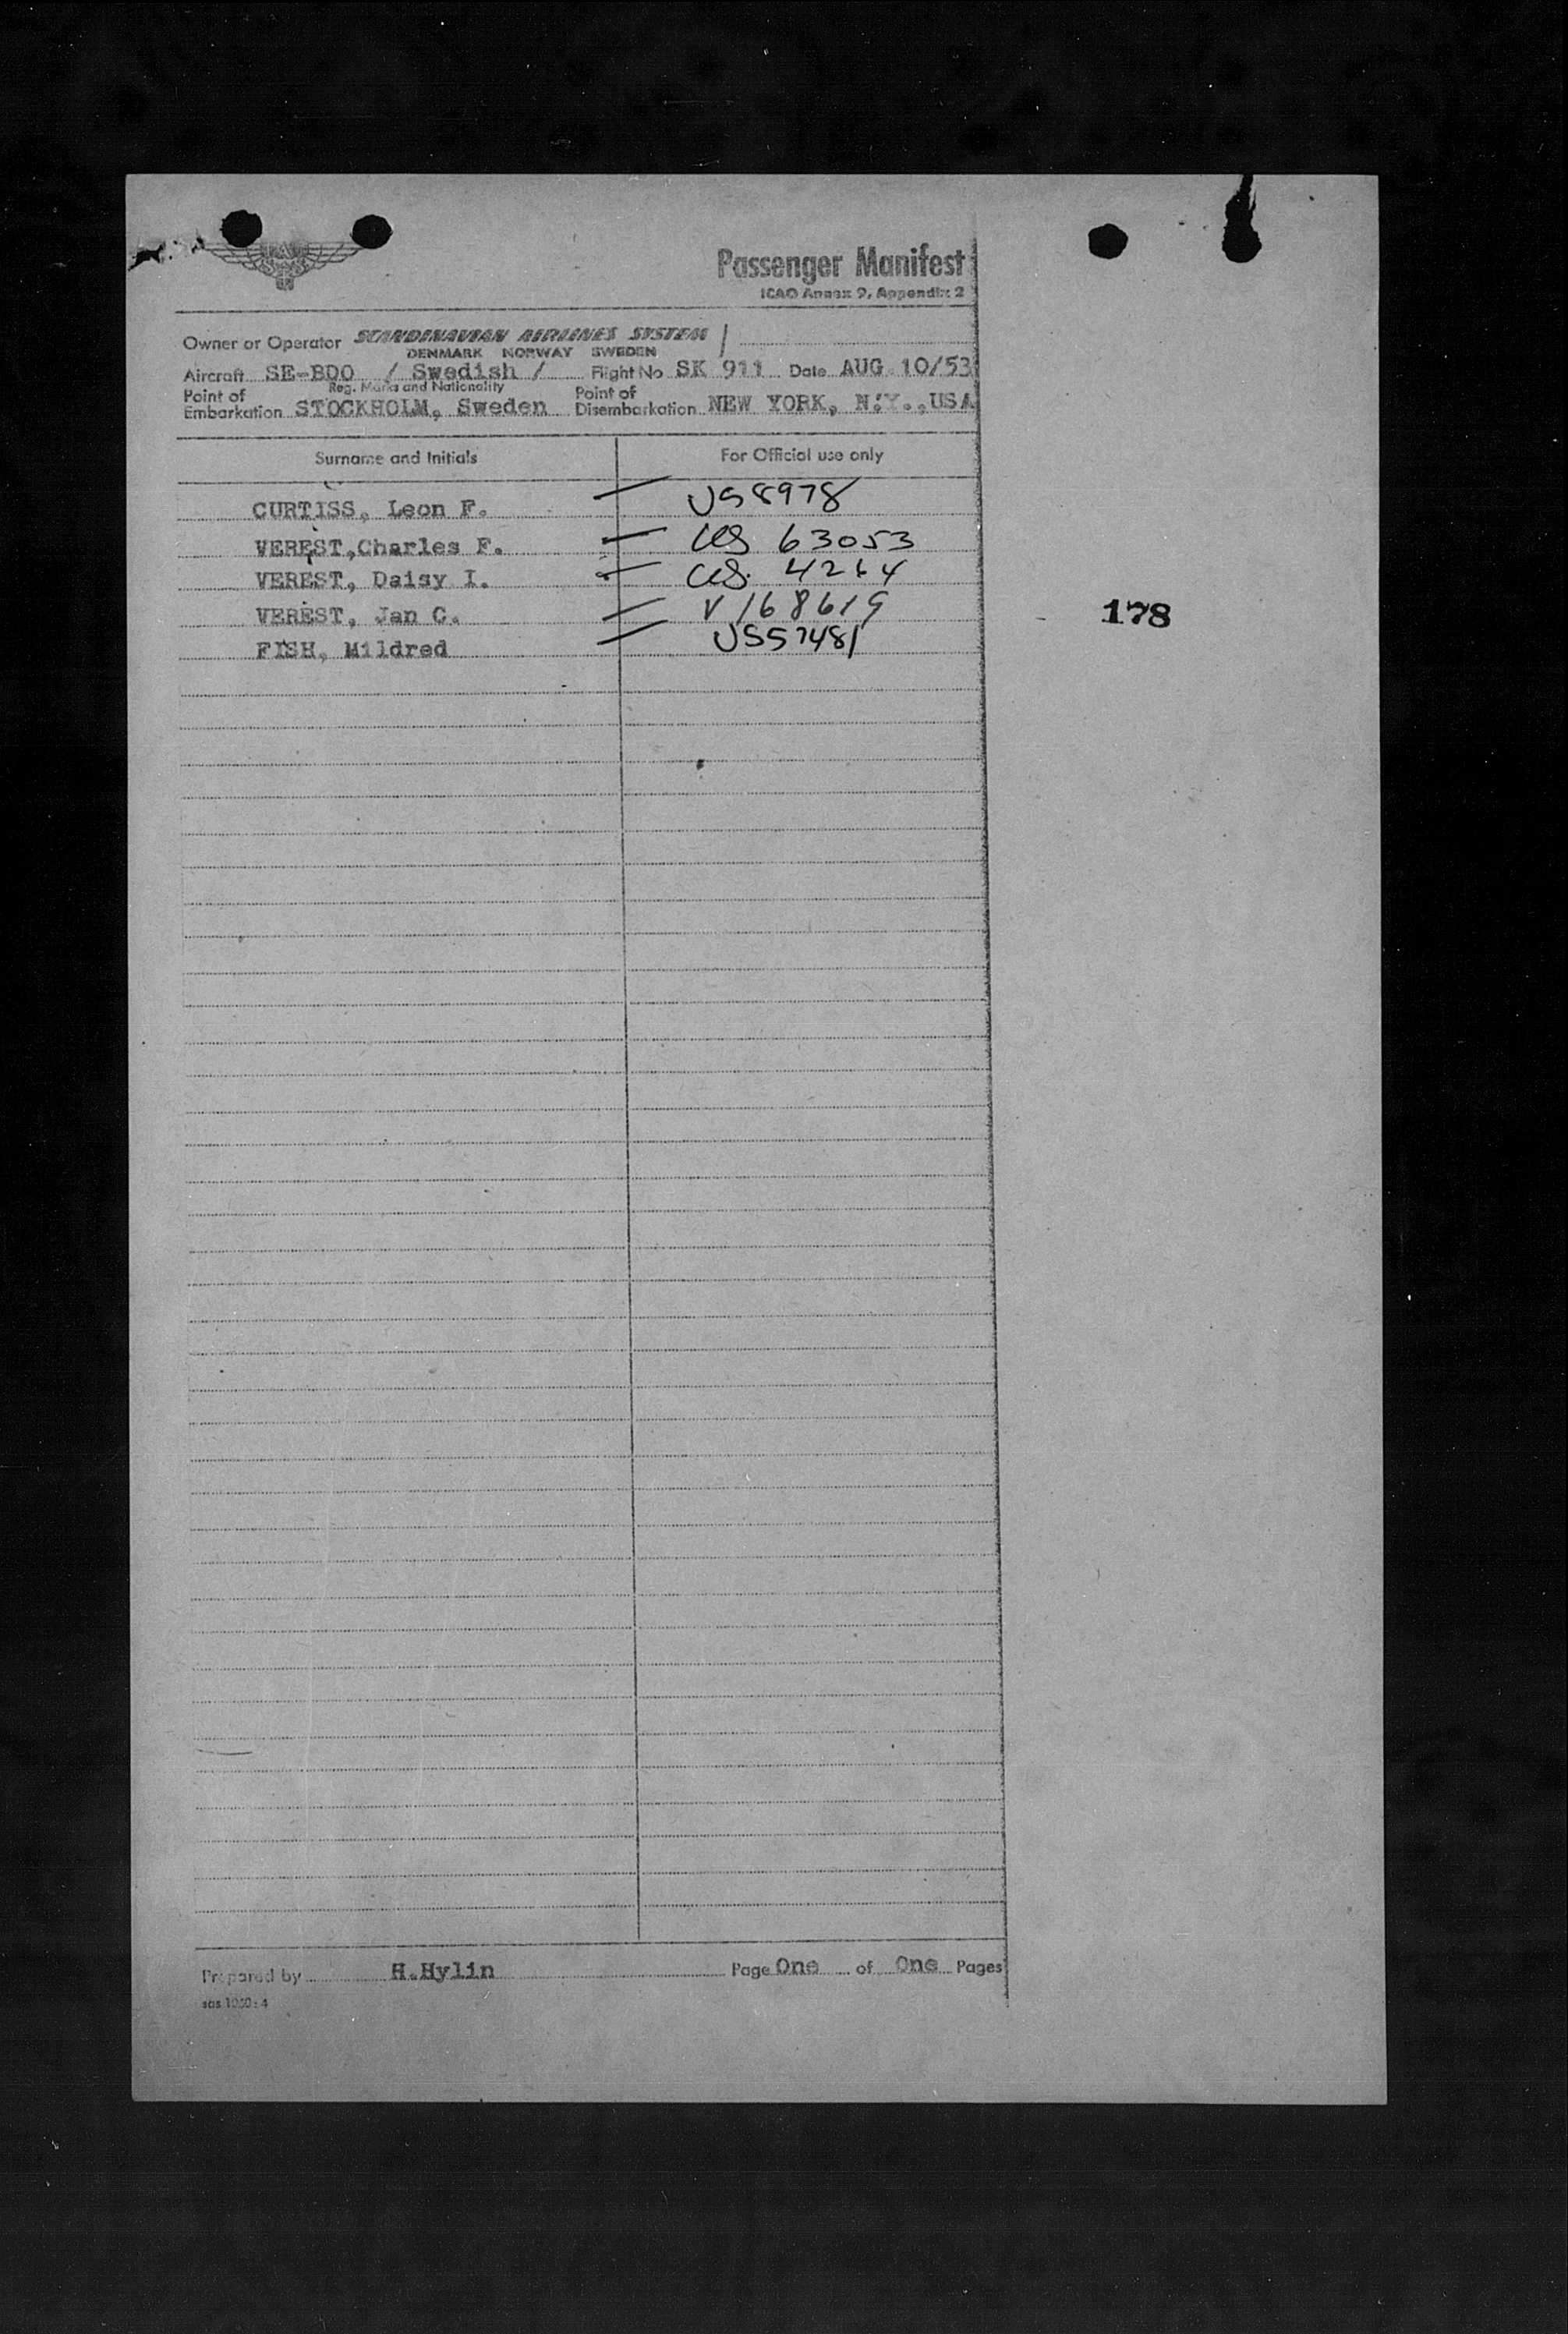 Passenger Manifest
ICAO Annex 9, Appendix 2
Owner or Operator SCANDINAVIAN AIRLINES SYSTEM
DENMARK NORWAY SWEDEN
Aircraft SE-BDO / Swedish / Flight No SK 911 Date AUG 10/53
Reg. Marks and Nationality
Point of Embarkation STOCKHOLM, Sweden Point of Disembarkation NEW YORK, N.Y., USA
Surname and Initials For Official use only
CURTISS, Leon F. US 8978
VEREST,Charles F. US 63053
VEREST, Daisy I. US. 4264
VEREST, Jan C. V 168619
178
FISH, Mildred US57481
Prepared by H.Hylin Page One of One Pages
sas 1050:4